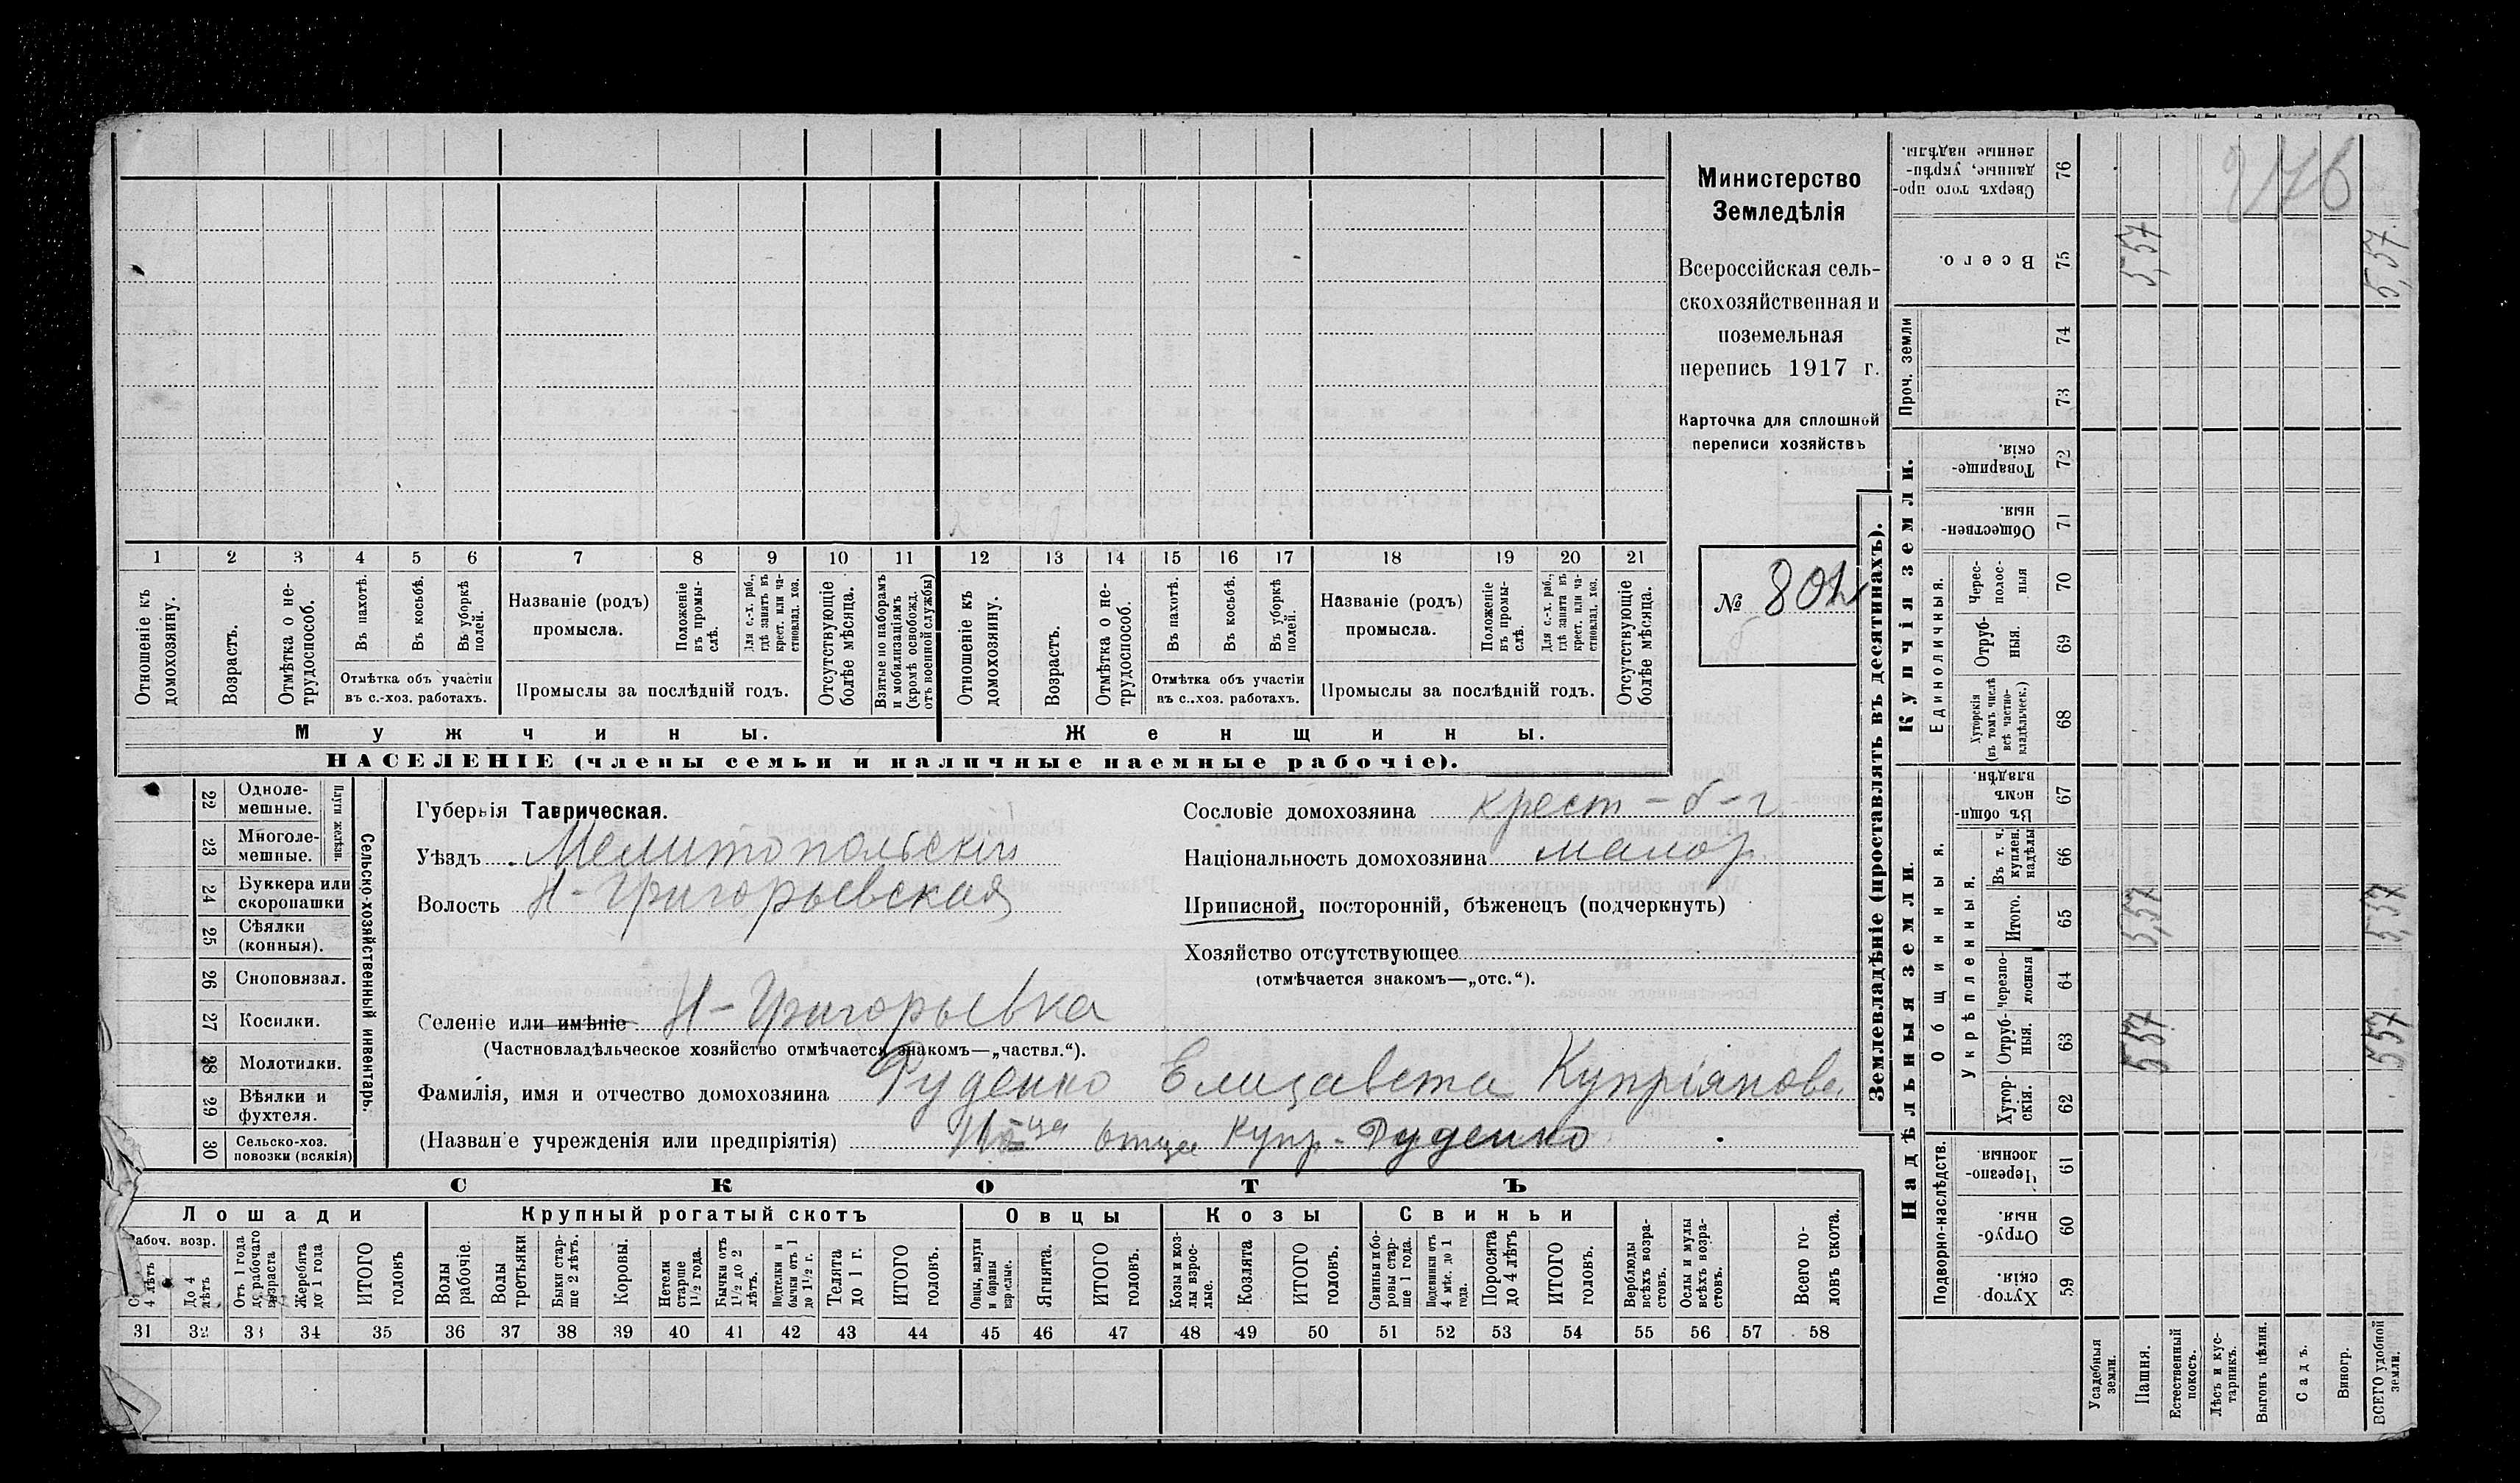 Министерство
Земледѣлія
Всероссійская сель-
скохозяйственная и
поземельная
перепись 1917 г.
Карточка для сплошной
переписи хозяйствъ
№ 802
1 2 3 4 5 6 7 8 9 10 11 12 13 14 15 16 17 18 19 20 21
Отношеніе къ домохозяину.
Возрастъ.
Отмѣтка о не-трудоспособ.
Въ пахотѣ.
Въ косьбѣ.
Въ уборкѣ полей.
Отмѣтка объ участіи
въ с.-хоз. работахъ.
Названіе (родъ)
промысла.
Положеніе въ промы-слѣ.
Для с.-х. раб., гдѣ занятъ въ крест. или ча-стновлад. хоз.
Промыслы за послѣдній годъ.
Отсутствующіе болѣе мѣсяца.
Взятые по наборамъ и мобилизаціямъ (кромѣ освобожд. отъ военной службы)
Отношеніе къ домохозяину.
Возрастъ.
Отмѣтка о не-трудоспособ.
Въ пахотѣ.
Въ косьбѣ.
Въ уборкѣ полей.
Отмѣтка объ участіи
въ с.-хоз. работахъ.
Названіе (родъ)
промысла.
Положеніе въ промы-слѣ.
Для с.-х. раб., гдѣ занята въ крест. или ча-стновлад. хоз.
Промыслы за послѣдній годъ.
Отсутствующіе болѣе мѣсяца.
Мужчины.
Женщины.
НАСЕЛЕНІЕ (члены семьи и наличные наемные рабочіе).
22 Одноле-мешные.
23 Многоле-мешные.
Плуги желѣзн.
24 Буккера или скоропашки
25 Сѣялки (конныя).
26 Сноповязал.
27 Косилки.
28 Молотилки.
29 Вѣялки и фухтеля.
30 Сельско-хоз. повозки (всякія)
Сельско-хозяйственный инвентарь.
Губернія Таврическая.
Уѣздъ Мелитопольскій
Волость Н-Григорьевская
Селеніе или имѣніе Н-Григорьевка
(Частновладѣльческое хозяйство отмѣчается знакомъ—„частвл.“).
Фамилія, имя и отчество домохозяина Руденко Елизавета Купріянова
(Названіе учрежденія или предпріятія) отца Купр. Руденко
Сословіе домохозяина крест-б-г
Національность домохозяина малор
Приписной, посторонній, бѣженецъ (подчеркнуть)
Хозяйство отсутствующее
(отмѣчается знакомъ—„отс.“).
СКОТЪ
Лошади
Крупный рогатый скотъ
Овцы
Козы
Свиньи
Рабоч. возр.
4 лѣтъ
До 4 лѣтъ
Отъ 1 года до рабочаго возраста
Жеребята до 1 года
ИТОГО головъ
Волы рабочіе.
Волы третьяки
Быки стар-ше 2 лѣтъ.
Коровы.
Нетели старше 1½ года.
Бычки отъ 1½ до 2 лѣтъ.
Подтелки и бычки отъ 1 до 1½ г.
Телята до 1 г.
ИТОГО головъ.
Овцы, валухи и бараны взрослые.
Ягнята.
ИТОГО головъ.
Козы и коз-лы взрос-лые.
Козлята
ИТОГО головъ.
Свиньи и бо-ровы стар-ше 1 года.
Подсвинки отъ 4 мѣс. до 1 года.
Поросята до 4 лѣтъ
ИТОГО головъ.
Верблюды всѣхъ возра-стовъ.
Ослы и мулы всѣхъ возра-стовъ.
Всего го-ловъ скота.
31 32 33 34 35 36 37 38 39 40 41 42 43 44 45 46 47 48 49 50 51 52 53 54 55 56 57 58
Землевладѣніе (проставлять въ десятинахъ).
Надѣльныя земли.
Купчія земли.
Проч. земли
Подворно-наслѣдств.
Общинныя.
Укрѣпленныя.
Единоличныя.
Сверхъ того про-данные, укрѣп-ленные надѣлы. 76
Всего. 75 5,57 5,57
74
73
Товарище-скія 72
Обществен-ныя. 71
Черес-полос-ныя 70
Отруб-ныя. 69
Хуторскія (въ томъ числѣ всѣ частно-владѣльческ.) 68
Въ общин-номъ владѣн. 67
Въ т. ч. куплен. надѣлы 66
Итого. 65 5,57 5,57
Черезпо-лосныя 64
Отруб-ныя. 63 5 57 5 57
Хутор-скія. 62
Черезпо-лосныя. 61
Отруб-ныя. 60
Хутор-скія. 59
Усадебныя земли.
Пашня.
Естественный покосъ.
Лѣсъ и кус-тарникъ.
Выгонъ цѣлин.
Садъ.
Виногр.
ВСЕГО удобной земли.